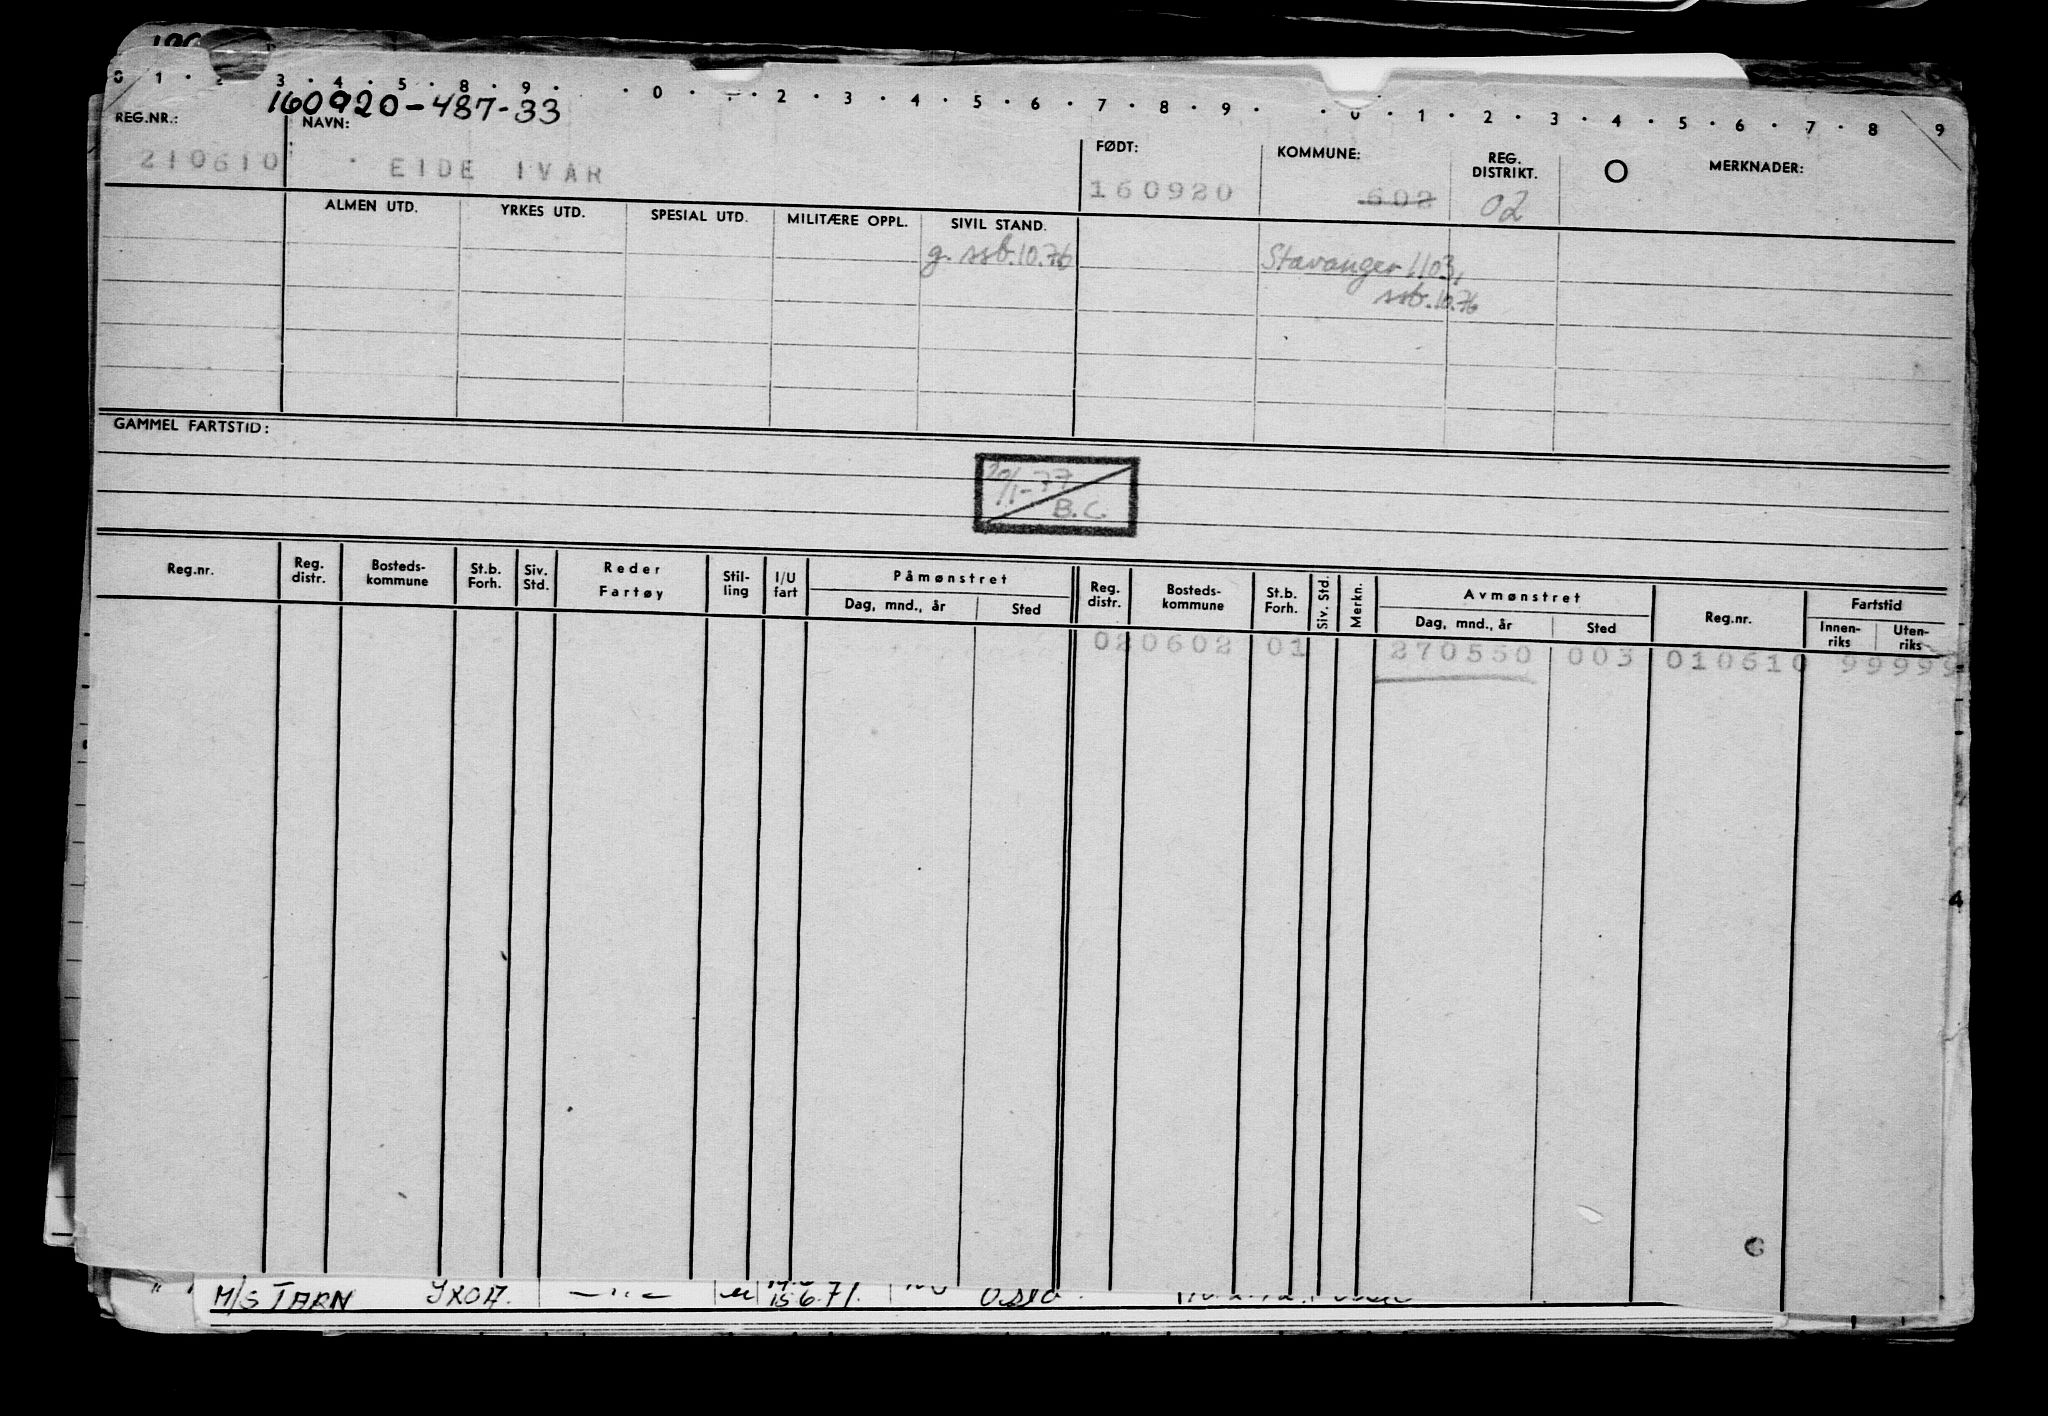 0 1 · 2 3 · 4 · 5 · 8 · 9 · · 0 · · 2 · 3 · 4 · 5 · 6 · 7 · 8 · 9 · · 0 · 1 · 2 · 3 · 4 · 5 · 6 · 7 · 8 9
160920-487-33
REG.NR.: NAVN: FØDT: KOMMUNE: REG. DISTRIKT. O MERKNADER:
210610 EIDE IVAR 160920 602 02
ALMEN UTD. YRKES UTD. SPESIAL UTD. MILITÆRE OPPL. SIVIL STAND.
g. ssb.10.76 Stavanger 1103,
ssb.10.76
GAMMEL FARTSTID:
20/1-77
B.C.
Reg.nr. Reg. distr. Bosteds-kommune St.b. Forh. Siv. Std. Reder Fartøy Stil-ling I/U fart Påmønstret Dag, mnd., år Sted Reg. distr. Bosteds-kommune St.b. Forh. Siv. Std. Merkn. Avmønstret Dag, mnd., år Sted Reg.nr. Fartstid Innen-riks Uten-riks
020602 01 270550 003 010610 99999
4
M/S TARN — " — 15.6.71. Oslo